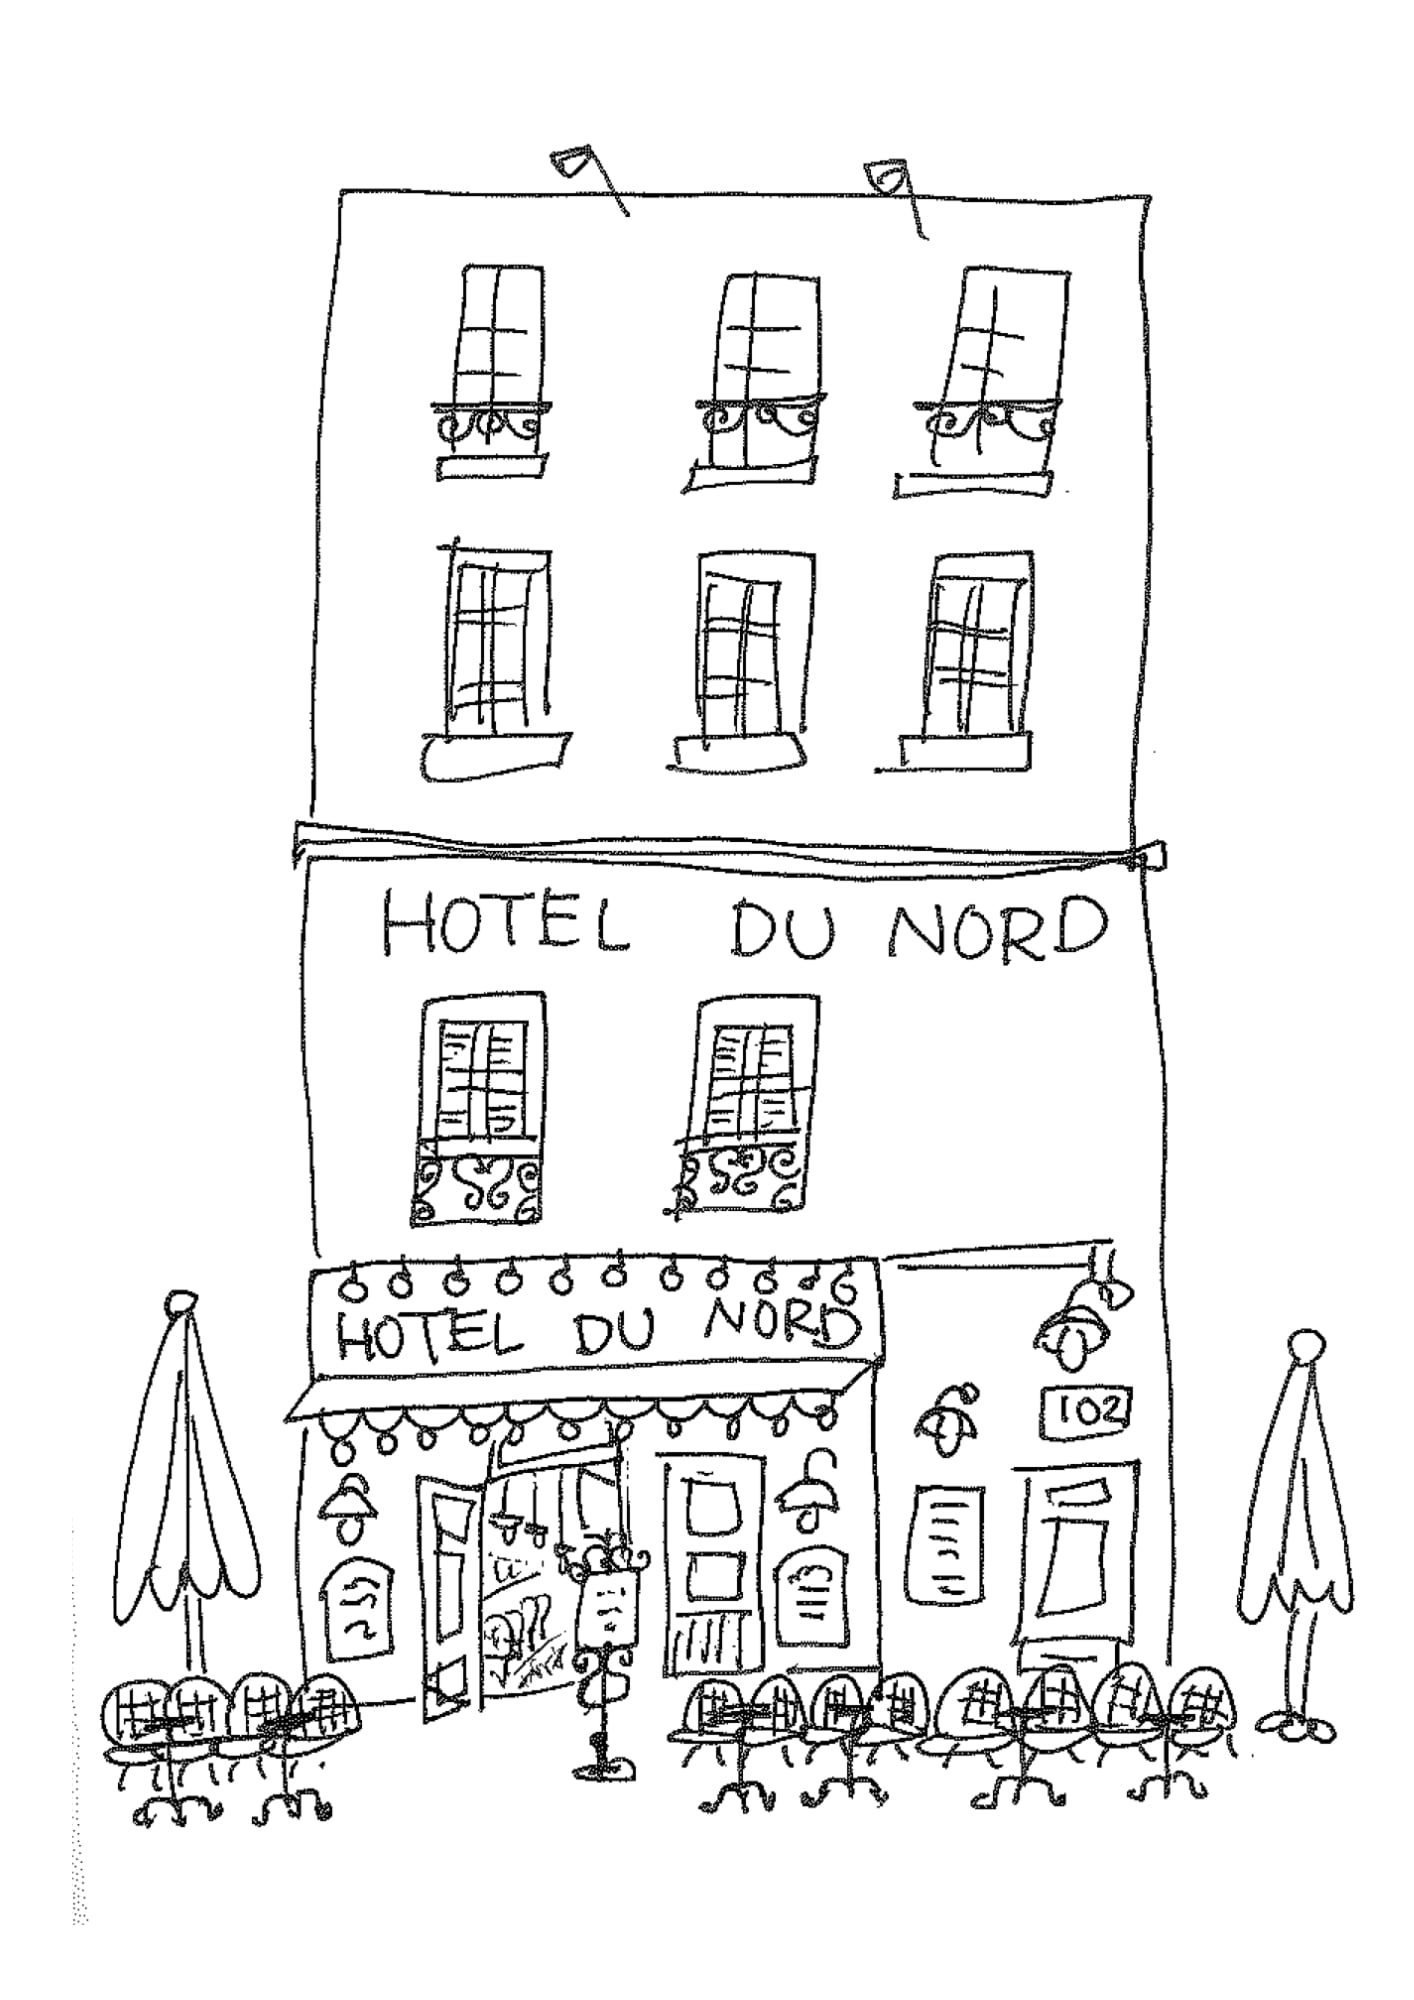 HOTEL DU NORD
HOTEL DU NORD
102